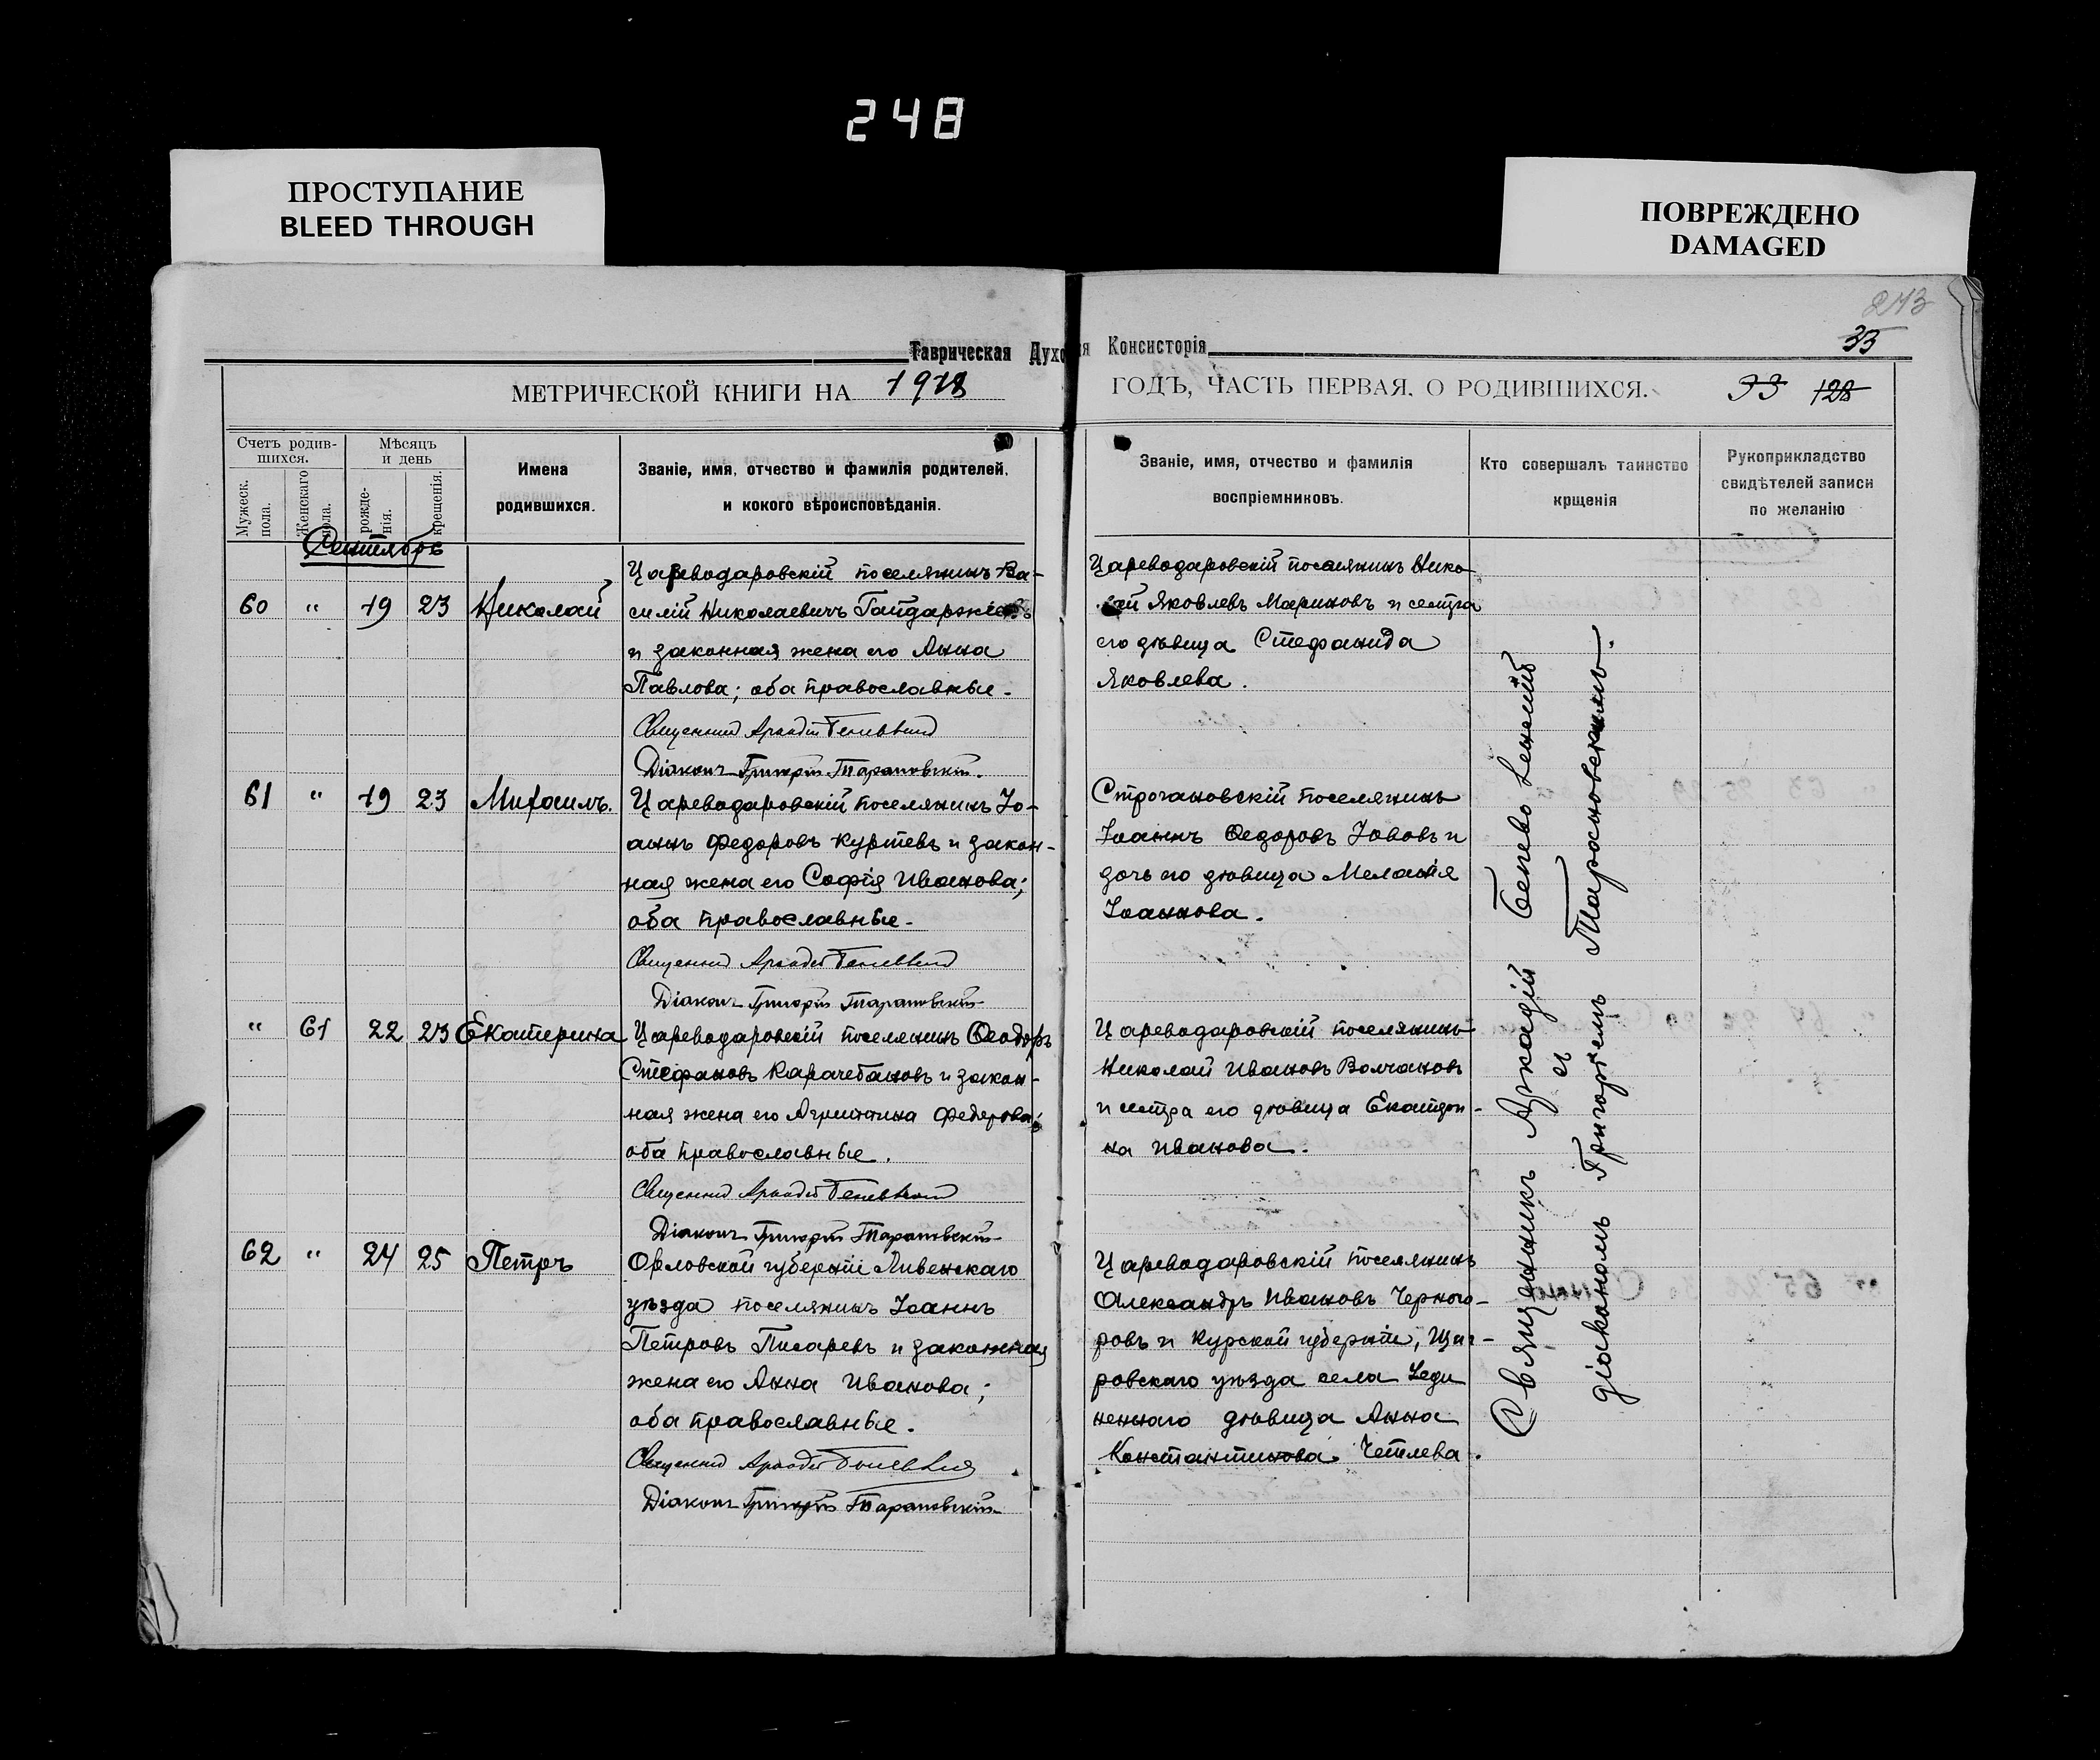 248
ПРОСТУПАНИЕ
BLEED THROUGH
ПОВРЕЖДЕНО
DAMAGED
273
33
Таврическая Духо
я Консисторія
МЕТРИЧЕСКОЙ КНИГИ НА 1918
ГОДЪ, ЧАСТЬ ПЕРВАЯ, О РОДИВШИХСЯ.
33 128
Счетъ родив-
шихся.
Мужеск.
пола.
Женскаго
пола.
Мѣсяцъ
и день
рожде-
нія.
крещенія.
Имена
родившихся.
Званіе, имя, отчество и фамилія родителей,
и кокого вѣроисповѣданія.
Званіе, имя, отчество и фамилія
воспріемниковъ.
Кто совершалъ таинство
крщенія
Рукоприкладство
свидѣтелей записи
по желанію
Сентябрь
60 " 19 23 Николай
Цареводаровскій поселянинъ Ва-
силій Николаевичъ Гайдаржіевъ
и законная жена его Анна
Павлова; оба православные.
Священникъ Аркадій
Діаконъ Григорій Тарановскій
Цареводаровскій поселянинъ Нико-
лай Яковлевъ Мариновъ и сестра
его дѣвица Стефанида
Яковлева.
61 " 19 23 Михаилъ.
Цареводаровскій поселянинъ Іо-
аннъ Федоровъ Куртевъ и закон-
ная жена его Софія Иванова;
оба православные.
Священникъ Аркадій
Діаконъ Григорій Тарановскій
Строгановскій поселянинъ
Іоаннъ Ѳедоровъ Іововъ и
дочь его дѣвица Меланія
Іоаннова.
" 61 22 23 Екатерина
Цареводаровскій поселянинъ Ѳеодоръ
Стефановъ Карачебановъ и закон-
ная жена его Агриппина Федорова;
оба православные.
Священникъ Аркадій
Діаконъ Григорій Тарановскій
Цареводаровскій поселянинъ
Николай Ивановъ Волчановъ
и сестра его дѣвица Екатери-
на Иванова.
62 " 24 25 Петръ
Орловской губерніи Ливенскаго
уѣзда поселянинъ Іоаннъ
Петровъ Писаревъ и законная
жена его Анна Иванова;
оба православные.
Священникъ Аркадій
Діаконъ Григорій Тарановскій
Цареводаровскій поселянинъ
Александръ Ивановъ Черного-
ровъ и Курской губерніи, Щиг-
ровскаго уѣзда села
дѣвица Анна
Константинова
Священникъ Аркадій
съ
діакономъ Григоріемъ Тарановскимъ.